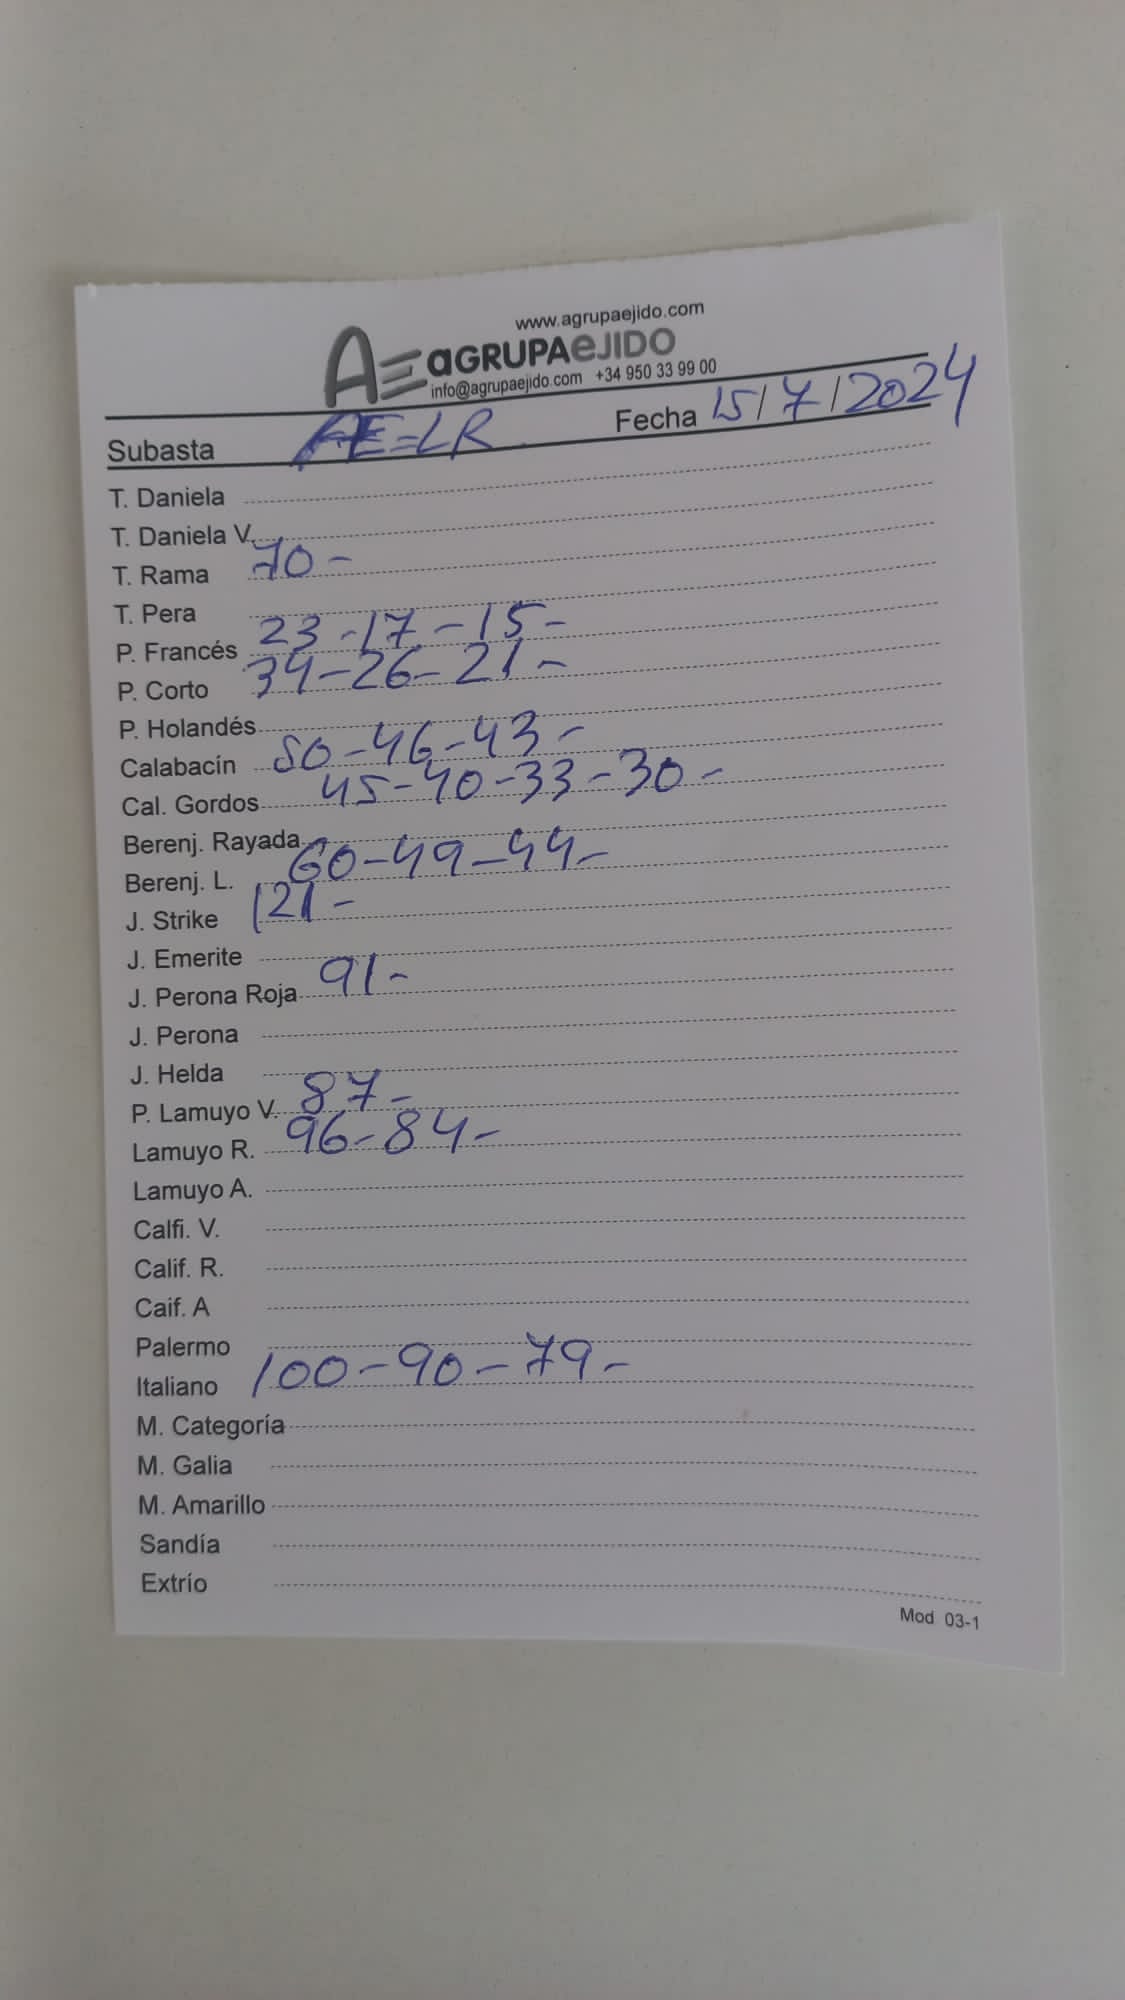 www.agrupaejido.com
AE aGRUPAeJIDO
info@agrupaejido.com +34 950 33 99 00
Subasta AE=LR Fecha 15/7/2024
T. Daniela
T. Daniela V.
T. Rama 70-
T. Pera
P. Francés 23-17-15-
P. Corto 34-26-21-
P. Holandés
Calabacín 50-46-43-
Cal. Gordos 45-40-33-30-
Berenj. Rayada
Berenj. L. 60-49-44-
J. Strike 121-
J. Emerite
J. Perona Roja 91-
J. Perona
J. Helda
P. Lamuyo V. 87-
Lamuyo R. 96-84-
Lamuyo A.
Calfi. V.
Calif. R.
Caif. A
Palermo
Italiano 100-90-79-
M. Categoría
M. Galia
M. Amarillo
Sandía
Extrío
Mod 03-1